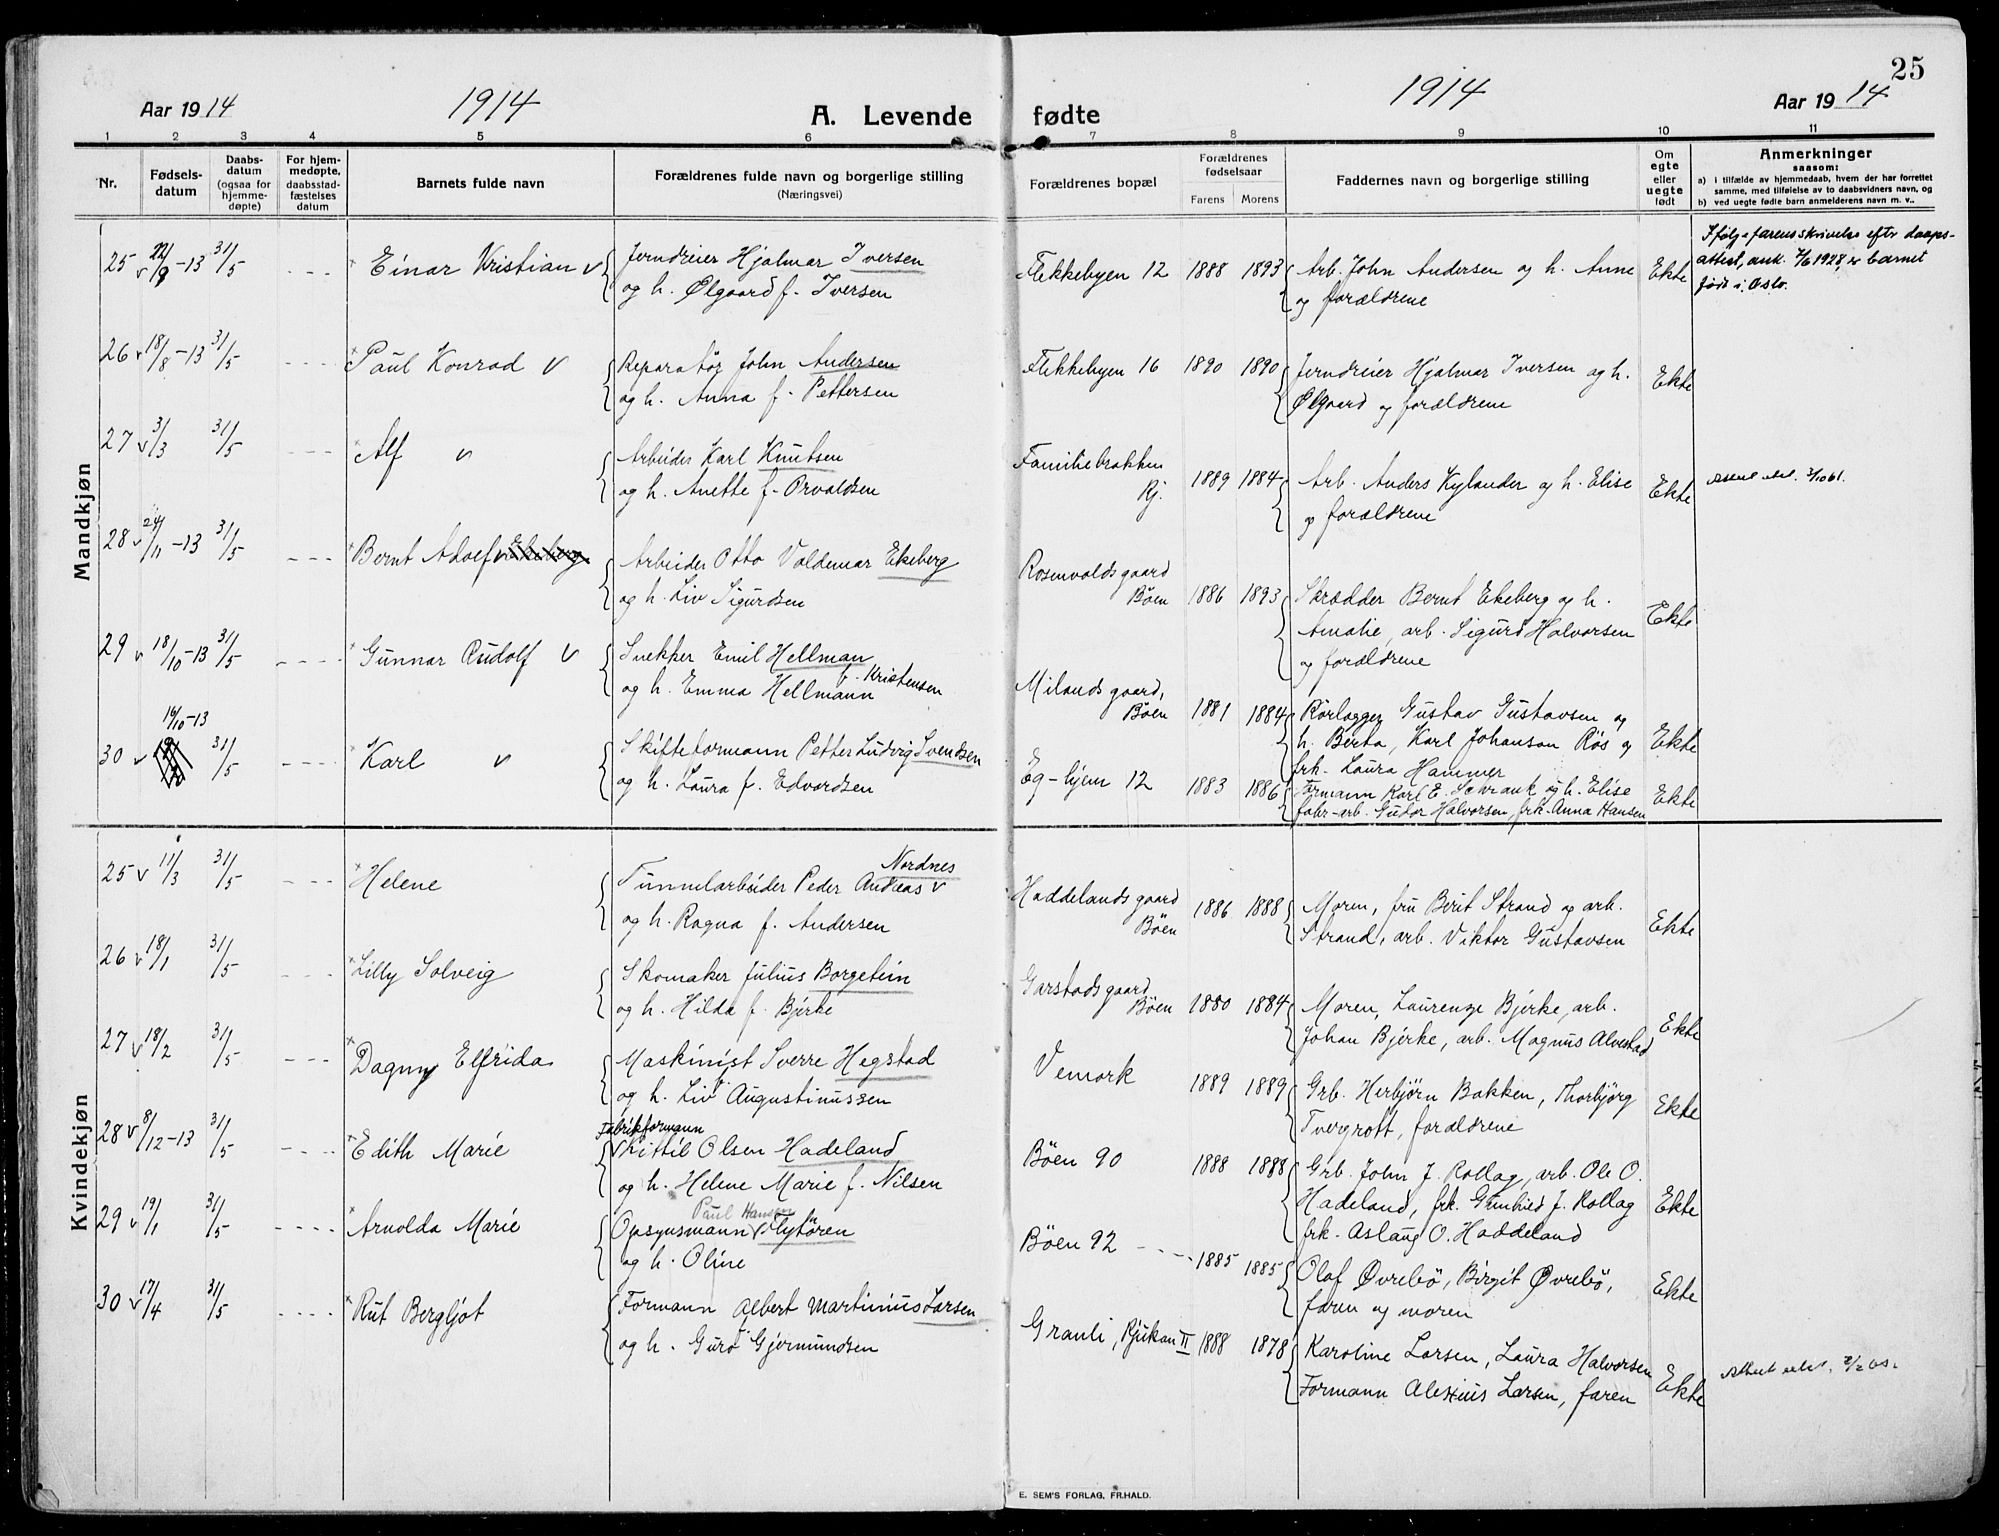 25
Aar 1914
1914
A. Levende fødte
1914
Aar 1914
1 2 3 4 5 6 7 8 9 10 11
Nr.
Fødsels-
datum
Daabs-
datum
(ogsaa for
hjemme-
døpte)
For hjem-
medøpte,
daabsstad-
fæstelses
datum
Barnets fulde navn
Forældrenes fulde navn og borgerlige stilling
(Næringsvei)
Forældrenes bopæl
Forældrenes
fødselsaar
Farens Morens
Faddernes navn og borgerlige stilling
Om
egte
eller
uegte
født
Anmerkninger
saasom:
a) i tilfælde av hjemmedaab, hvem der har forrettet
samme, med tilføielse av to daabsvidners navn, og
b) ved uegte fødte barn anmelderens navn m. v..
Mandkjøn
25 v 22/9 -13 31/5 Einar Kristian v Jerndreier Hjalmar Iversen
og h. Ølgaard f. Iversen
Flekkebyen 12 1888 1893 Arb. John Andersen og h. Anne
og forældrene
Ekte
Ifølge farens skrivelse efter daaps-
attest, ank. 7/6 1928, er barnet
født i Oslo.
26 v 18/8 -13 31/5 Paul Konrad v Reparatør John Andersen
og h. Anna f. Pettersen
Flekkebyen 16 1890 1890 Jerndreier Hjalmar Iversen og h.
Ølgaard og forældrene
Ekte
27 v 3/3 31/5 Alf v Arbeider Karl Knutsen
og h. Anette f. Orvaldsen
Familiebrakken
Rj. 1889 1884 Arb. Anders Kylander og h. Elise
og forældrene
Ekte
28 v 24/11 -13 31/5 Bernt Adolf Arbeider Otto Valdemar Ekeberg
og h. Liv Sigurdsen
Rosenvoldsgaard
Böen 1886 1893 Skrædder Bernt Ekeberg og h.
Amalie, arb. Sigurd Halvorsen
og forældrene
Ekte
29 v 18/10 -13 31/5 Gunnar Rudolf v Snekker Emil Hellman
f. Kristensen
og h. Emma Hellmann
Milandsgaard,
Böen 1881 1884 Rörlegger Gustav Gustavsen og
h. Berta, Karl Johanson Røs og
frk. Laura Hammer
Ekte
16/10 -13
30 v 31/5 Karl v Skifteformann Petter Ludvig Svendsen
og h. Laura f. Edvardsen
Eg-hjem 12 1883 1886 Formann Karl E. Schrank og h. Elise
fabr-arb. Gudor Halvorsen, frk. Anna Hansen
Ekte
Kvindekjøn
25 v 11/3 31/5 Helene Tunnelarbeider Peder Andreas v
Nordnes
og h. Ragna f. Andersen
Haddelandsgaard
Böen 1886 1888 Moren, fru Berit Strand og arb.
Strand, arb. Viktor Gustavsen
Ekte
26 v 18/1 31/5 Lilly Solveig Skomaker Julius Borgetein
og h. Hilda f. Bjerke
Garstadsgaard
Böen 1880 1884 Moren, Laurense Bjerke, arb.
Johan Bjerke, arb. Magnus Alvestad
Ekte
27 v 18/2 31/5 Dagny Elfrida Maskinist Sverre Hegstad
og h. Liv Augustinussen
Vemork 1889 1889 Grb. Herbjörn Bakken, Thorbjörg
Tvergrott, forældrene
Ekte
28 v 8/12 -13 31/5 Edith Marie Fabrikformann
Kittil Olsen Hadeland
og h. Helene Marie f. Nilsen
Böen 90 1888 1888 Grb. John J. Rollag, arb. Ole O.
Hadeland, frk. Gunhild J. Rollag
frk. Aslaug O. Haddeland
Ekte
29 v 19/1 31/5 Arnolda Marie Paul Hansen
Opsynsmann v Flytören
og h. Oline
Böen 92 1885 1885 Olaf Øvrebö, Birgit Øvrebö,
faren og moren
Ekte
30 v 17/4 31/5 Rut Bergljot Formann Albert Martinius Larsen
og h. Guro Gjermundsen
Granli, Rjukan II 1888 1878 Karoline Larsen, Laura Halvorsen
Formann Alexius Larsen, faren
Ekte
E. SEM'S FORLAG, FR.HALD.